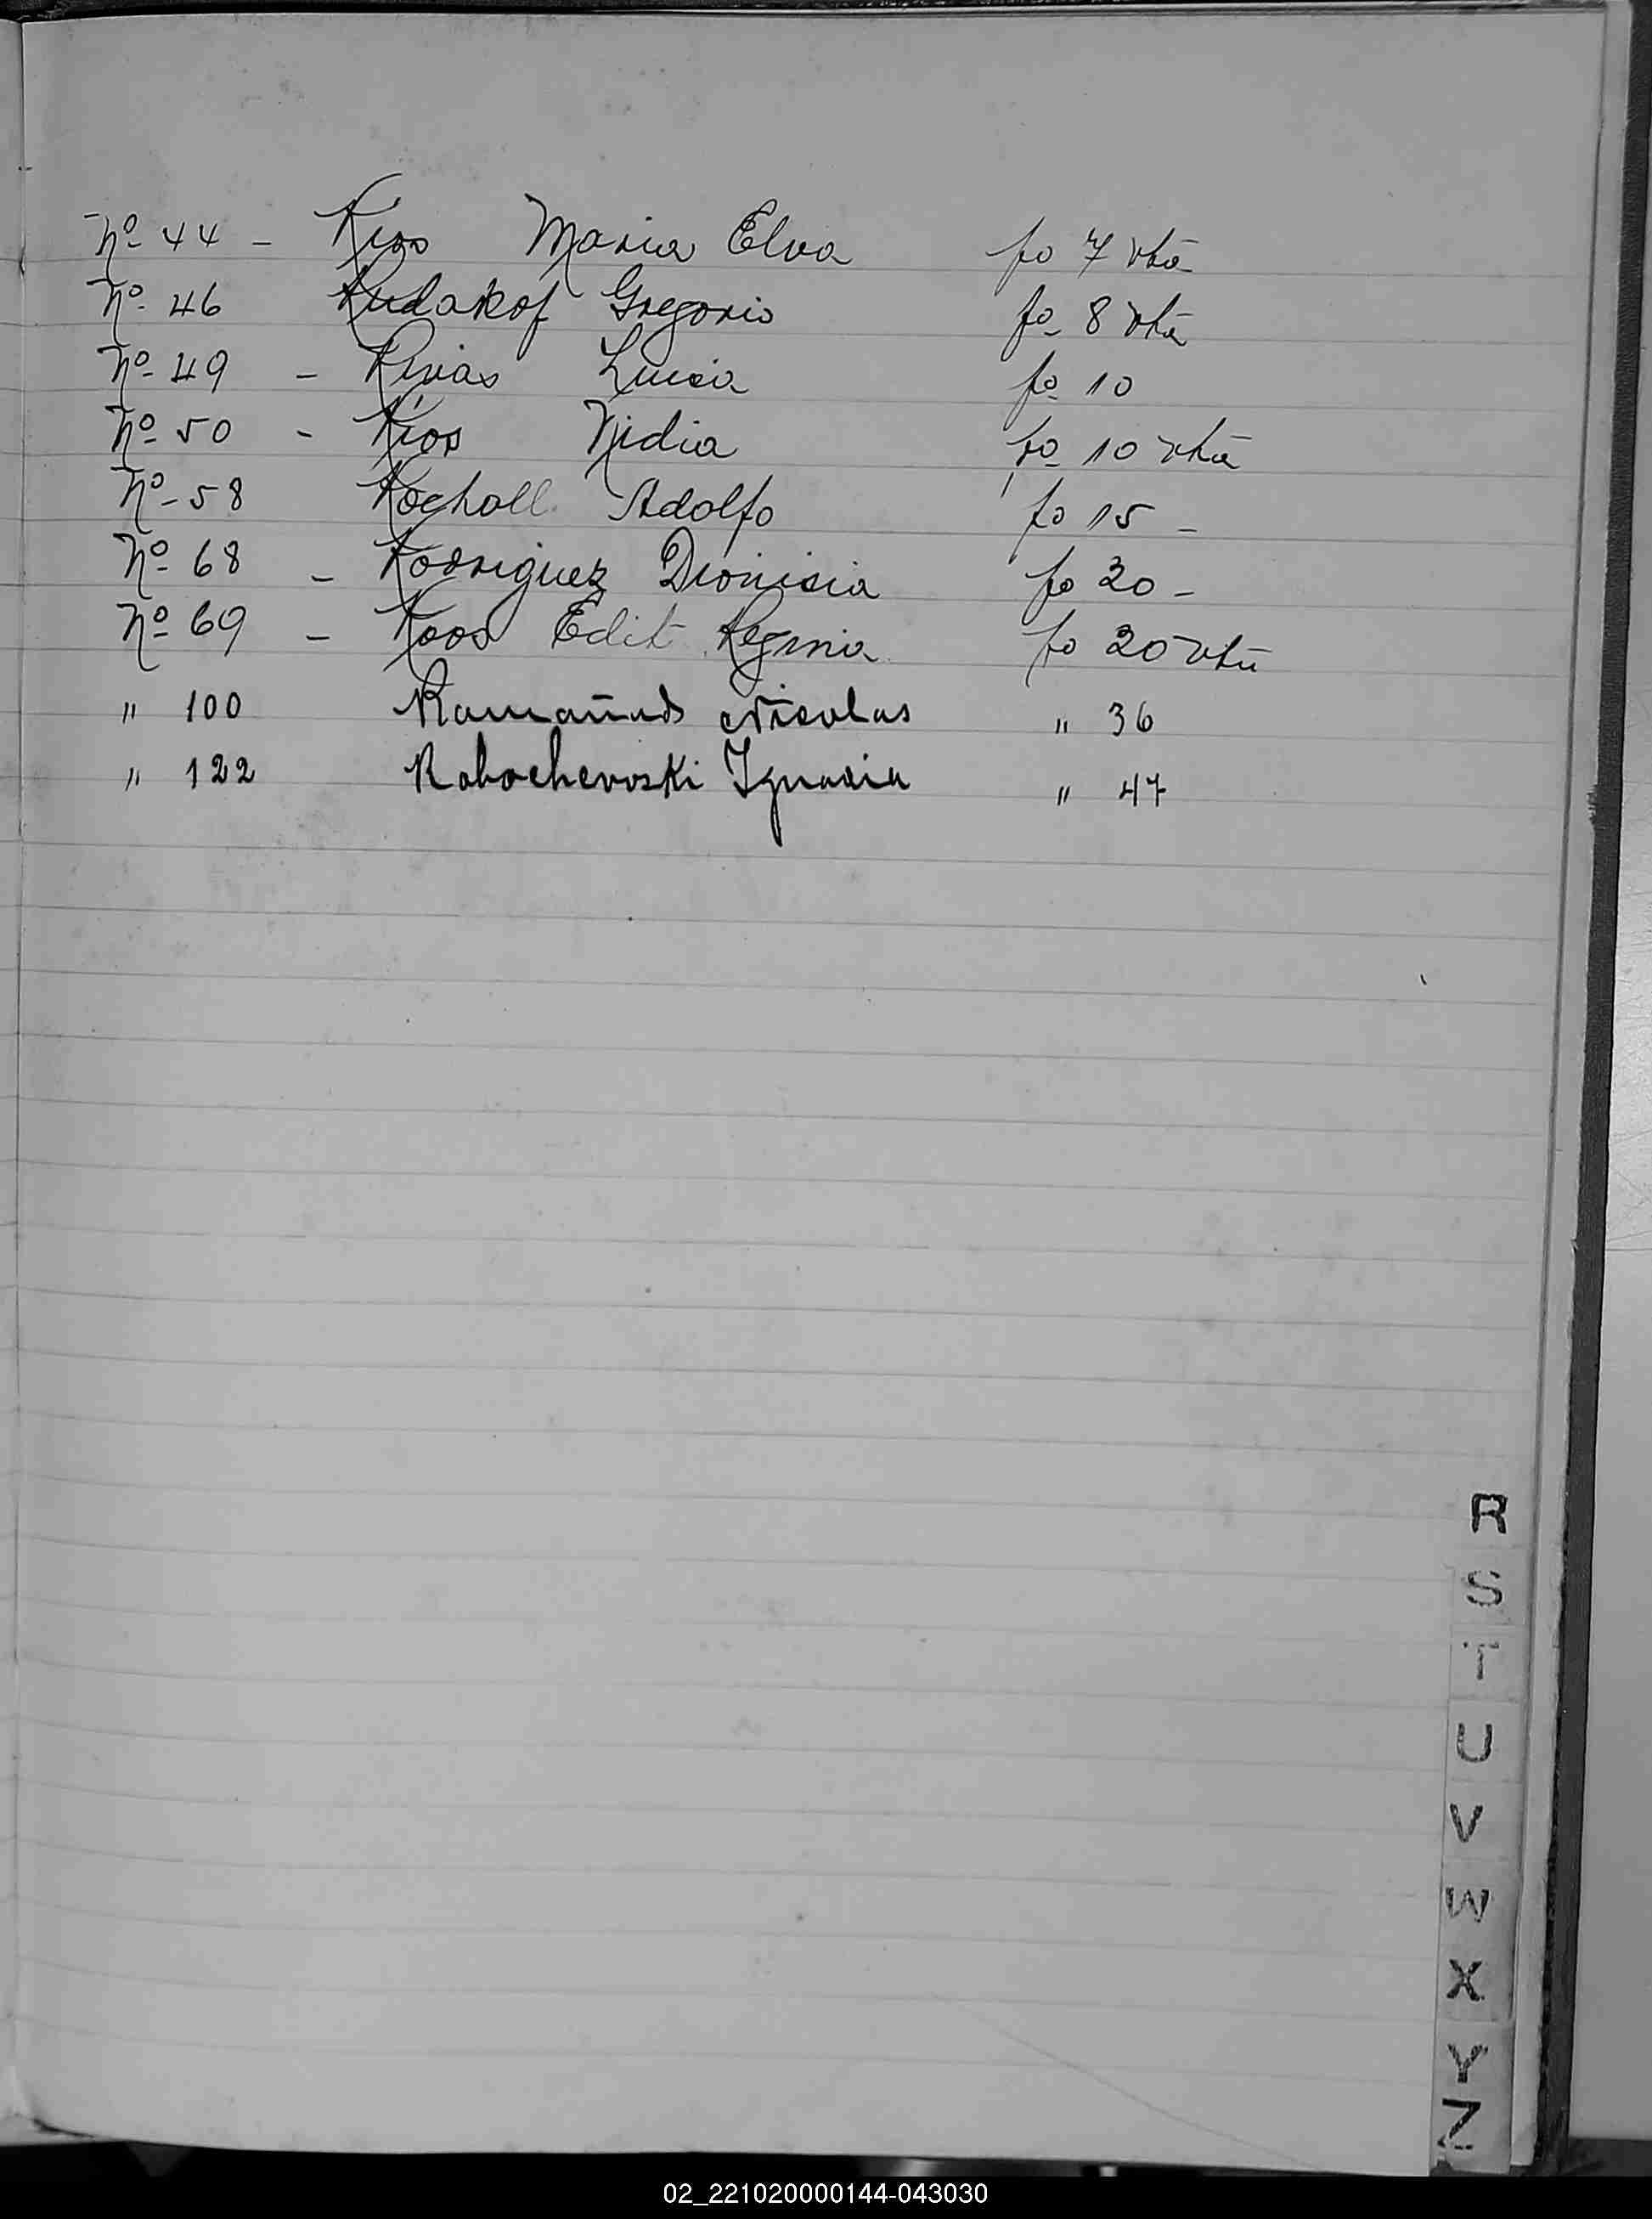 Nº 44 - Rios Maria Elva fo 7 vta
Nº 46 Rudakof Gregorio fo 8 vta
Nº 49 - Rivas Lucia fo 10
Nº 50 - Rios Nidia fo 10 vta
Nº 58 Rocholl Adolfo fo 15 -
Nº 68 - Rodriguez Dionisia fo 20 -
Nº 69 - Roos Edit Regina fo 20 vta
" 100 Nicolas " 36
" 122 Ignacia " 47
R
S
T
U
V
W
X
Y
Z
02_221020000144-043030